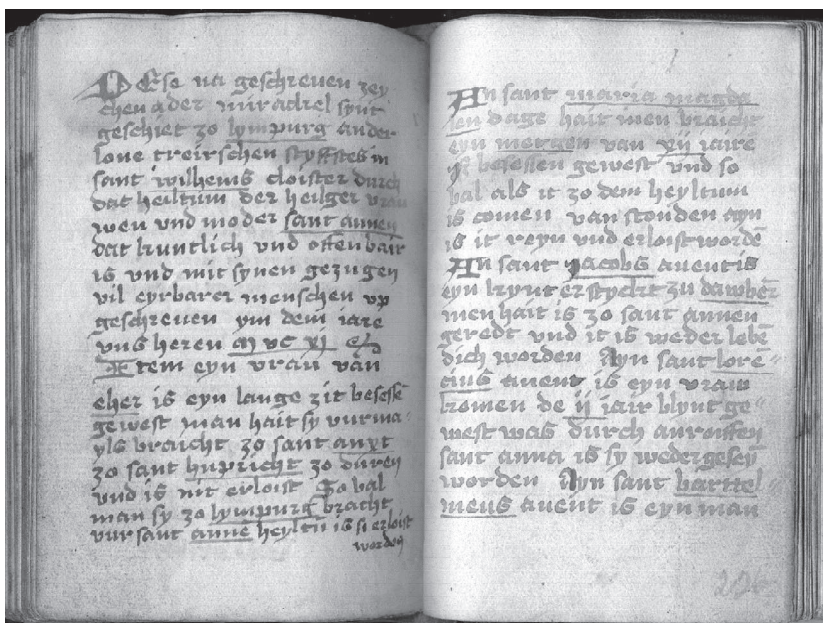 Dese na geschreuen zey
chen ader mirackel synt
geschiet zo lympurg ander
lone treirschen styfftes in
sant wilhems cloister durch
dat heiltum der heilger vrau
wen vnd moder sant annen
dat kuntlich vnd offenbair
is vnd mit synen gezugen
vil eyrbarer menschen vp
geschreuen ym dem iare
vns heren m vc xj
Item eyn vrau van
eher is eyn lange zit besessē
gewest man hait sy vurma
yls braicht zo sant anxt
zo sant hupricht zo duren
vnd is nit erloist So bal
man sy zo lympurg bracht
vur sant anne heyltū is si erloist
worden
An sant maria magda
len dage hait men braicht
eyn mergen van xij iairē
besessen gewest vnd so
bal als it zo dem heyltum
is comen van stonden ayn
is it reyn vnd erloist wordē
An sant jacobs auent is
eyn kynt erstyckt zu dawber
men hait is zo sant annen
geredt vnd it is weder lebē
dich worden Ayn sant lorē
cius auent is eyn vraw
komen de ij iair blynt ge
west was durch anroiffen
sant anna is sy wedergesey
worden Ayn sant barttel
meus auent is eyn man